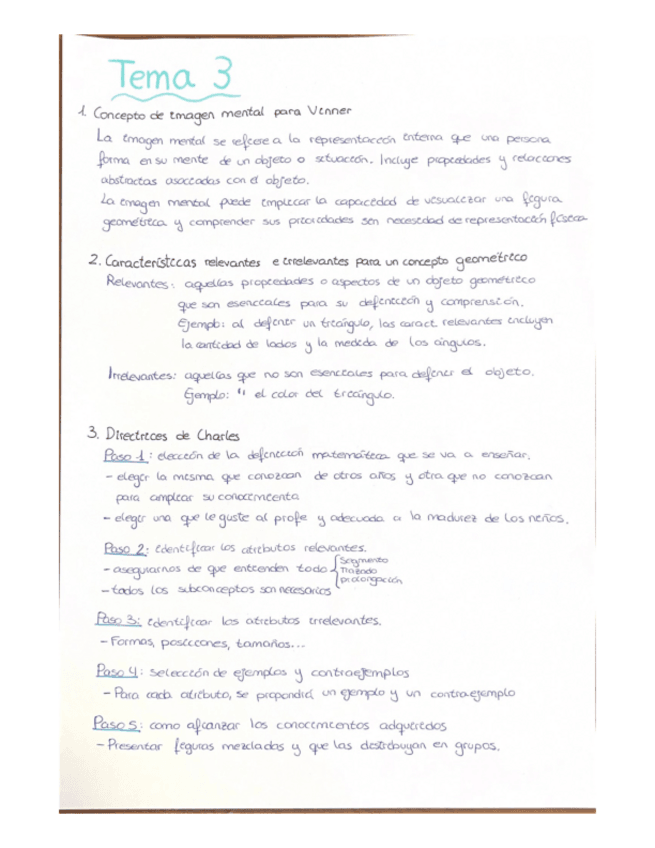 Tema 3
1. Concepto de imagen mental para Vinner
La imagen mental se refiere a la representación interna que una persona
forma en su mente de un objeto o situación. Incluye propiedades y relaciones
abstractas asociadas con el objeto.
La imagen mental puede implicar la capacidad de visualizar una figura
geométrica y comprender sus propiedades sin necesidad de representación física
2. Características relevantes e irrelevantes para un concepto geométrico
Relevantes: aquellas propiedades o aspectos de un objeto geométrico
que son esenciales para su definición y comprensión.
Ejemplo: al definir un triángulo, las caract. relevantes incluyen
la cantidad de lados y la medida de los ángulos.
Irrelevantes: aquellas que no son esenciales para definir el objeto.
Ejemplo: " el color del triángulo.
3. Directrices de Charles
Paso 1: elección de la definición matemática que se va a enseñar.
- elegir la misma que conozcan de otros años y otra que no conozcan
para ampliar su conocimiento
- elegir una que le guste al profe y adecuada a la madurez de los niños.
Paso 2: identificar los atributos relevantes.
- asegurarnos de que entienden todo { Segmento
Trazado
prolongación
- todos los subconceptos son necesarios
Paso 3: identificar los atributos irrelevantes.
- Formas, posiciones, tamaños...
Paso 4: selección de ejemplos y contraejemplos
- Para cada atributo, se propondrá un ejemplo y un contraejemplo
Paso 5: como afianzar los conocimientos adquiridos
- Presentar figuras mezcladas y que las distribuyan en grupos.